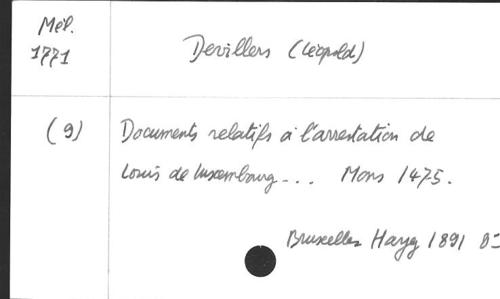 Mél.
1771
Devillers (Léopold)
(9) Documents relatifs à l'arrestation de
Louis de Luxembourg... Mons 1475.
Bruxelles Hayg 1891 8º